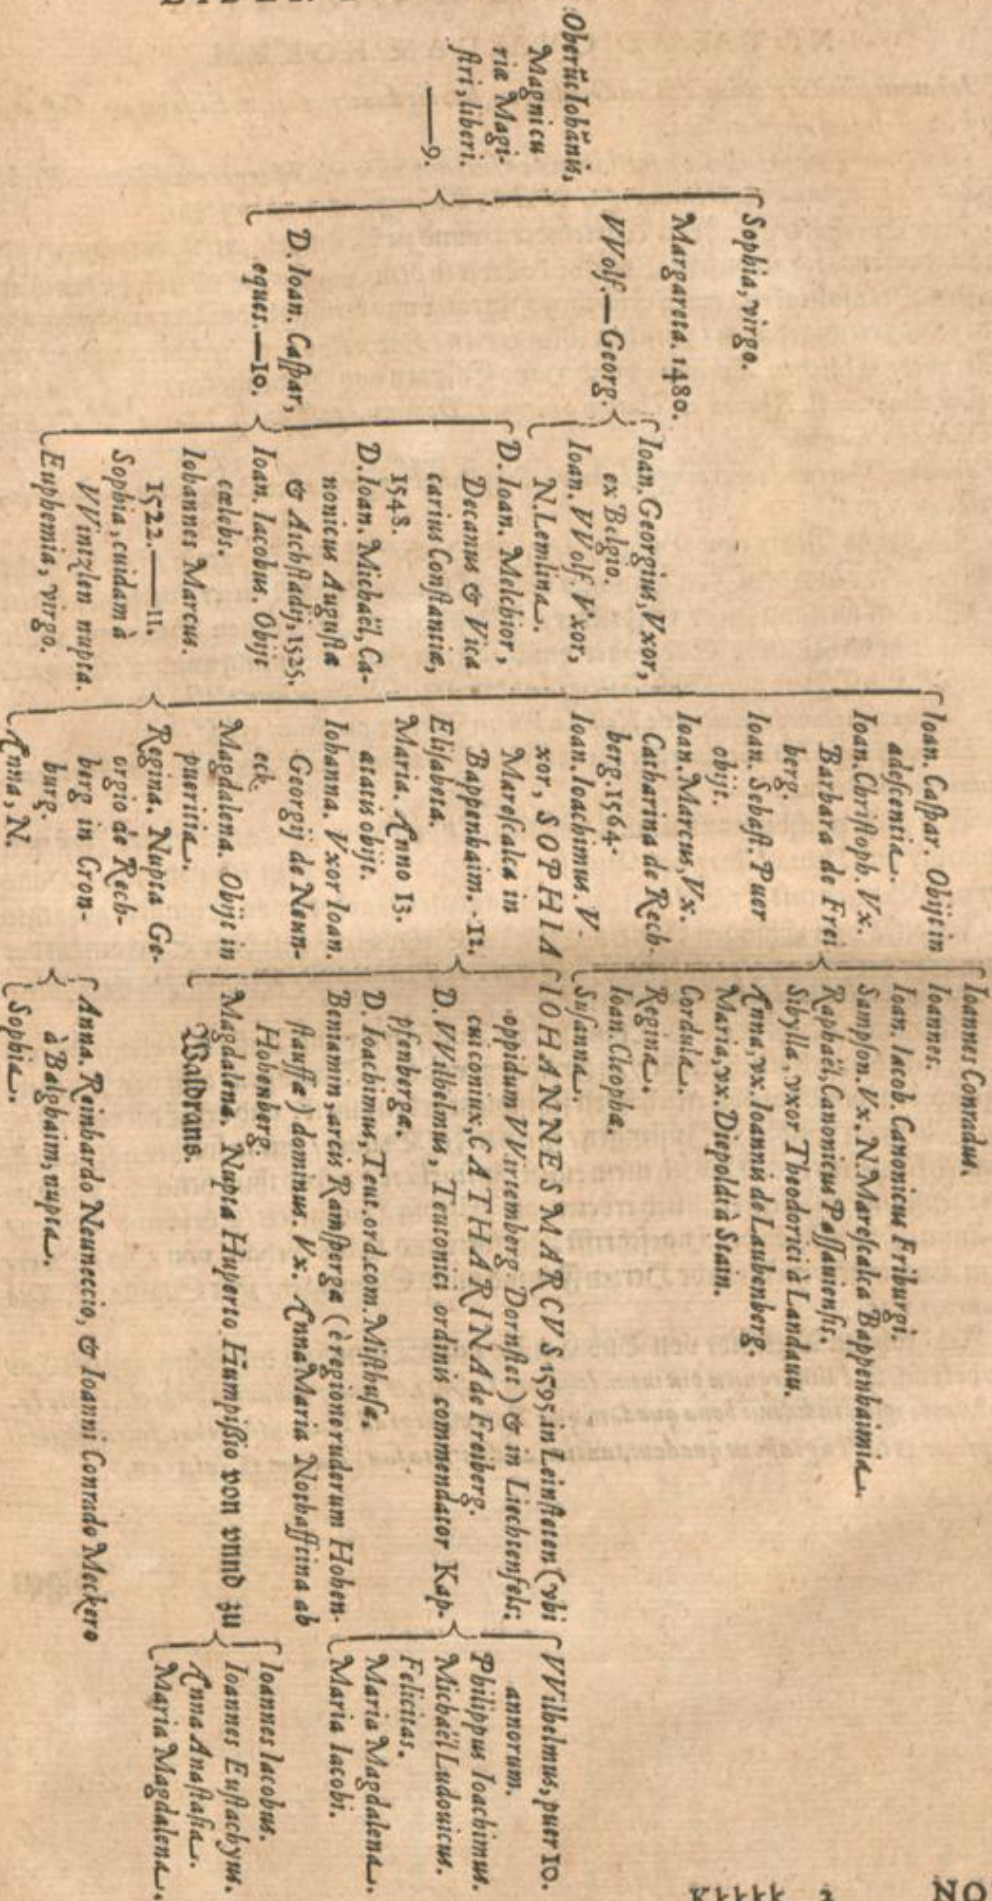 Oberūc Iohānis,
Magni cu
riæ Magi-
stri, liberi.
——9.
Sophia, virgo.
Margareta. 1480.
VVolf.—Georg.
D. Ioan. Caspar,
eques.—10.
Ioan. Georgius, Vxor,
ex Belgio.
Ioan. VVolf. Vxor,
N. Lemlina.
D. Ioan. Melchior,
Decanus & Vica
carius Constantiæ,
1548.
D. Ioan. Michaël, Ca-
nonicus Augustæ
& Aichstadij, 1525.
Ioan. Iacobus. Obijt
cœlebs.
Iohannes Marcus.
1522.——11.
Sophia, cuidam à
VVintzlen nupta.
Euphemia, virgo.
Ioan. Caspar. Obijt in
adescentia.
Ioan. Christoph. Vx.
Barbara de Frei
berg.
Ioan. Sebast. Puer
obijt.
Ioan. Marcus, Vx.
Catharina de Rech-
berg. 1564.
Ioan. Ioachimus. V-
xor, SOPHIA
Marescalca in
Bappenhaim. -12.
Elisabeta.
Maria. Anno 13.
ætatis obijt.
Iohanna. Vxor Ioan.
Georgij de Neun-
eck.
Magdalena. Obijt in
pueritia.
Regina. Nupta Ge-
orgio de Rech-
berg in Cron-
burg.
Anna, N.
Ioannes Conradus.
Ioannes.
Ioan. Iacob. Canonicus Friburgi.
Sampson. Vx. N. Marescalca Bappenhaimia.
Raphaël, Canonicus Passauiensis.
Sibylla, vxor Theodorici à Landauu.
Anna, vx. Ioannis de Laubenberg.
Maria, vx. Diepoldi à Stain.
Cordula.
Regina.
Ioan. Cleophæ.
Susanna.
IOHANNES MARCVS 1595. in Leinsteten (vbi
oppidum VVirtemberg. Dornstet) & in Liechtenfels:
cui coniux, CATHARINA de Freiberg.
D. VVilhelmus, Teutonici ordinis commendator Kap-
pfenbergæ.
D. Ioachimus, Teut. ord. com. Misthusæ.
Beniamin, arcis Ramsperga (è regione ruderum Hohen-
stauffæ) dominus. Vx. Anna Maria Nothafftina ab
Hohenberg.
Magdalena. Nupta Huperto Humpißio von vnnd zu
Waldrams.
Anna. Reinhardo Neuneccio, & Ioanni Conrado Meckero
à Balghaim, nupta.
Sophia.
VVilhelmus, puer 10.
annorum.
Philippus Ioachimus.
Michaël Ludouicus.
Felicitas.
Maria Magdalena.
Maria Iacobi.
Ioannes Iacobus.
Ioannes Eustachyus.
Anna Anastasia.
Maria Magdalena.
Kkkkk 3
NO